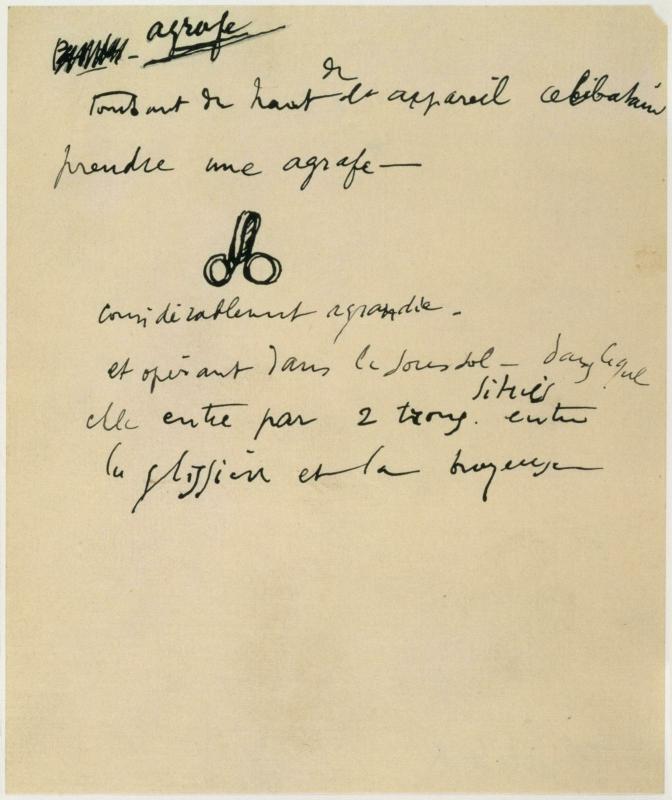 agrafe
de
Tombant du haut de l'appareil célibataire
prendre une agrafe —
considérablement agrandie.
et opérant dans le sous sol — dans lequel
situés
elle entre par 2 trous. entre
la glissière et la broyeuse